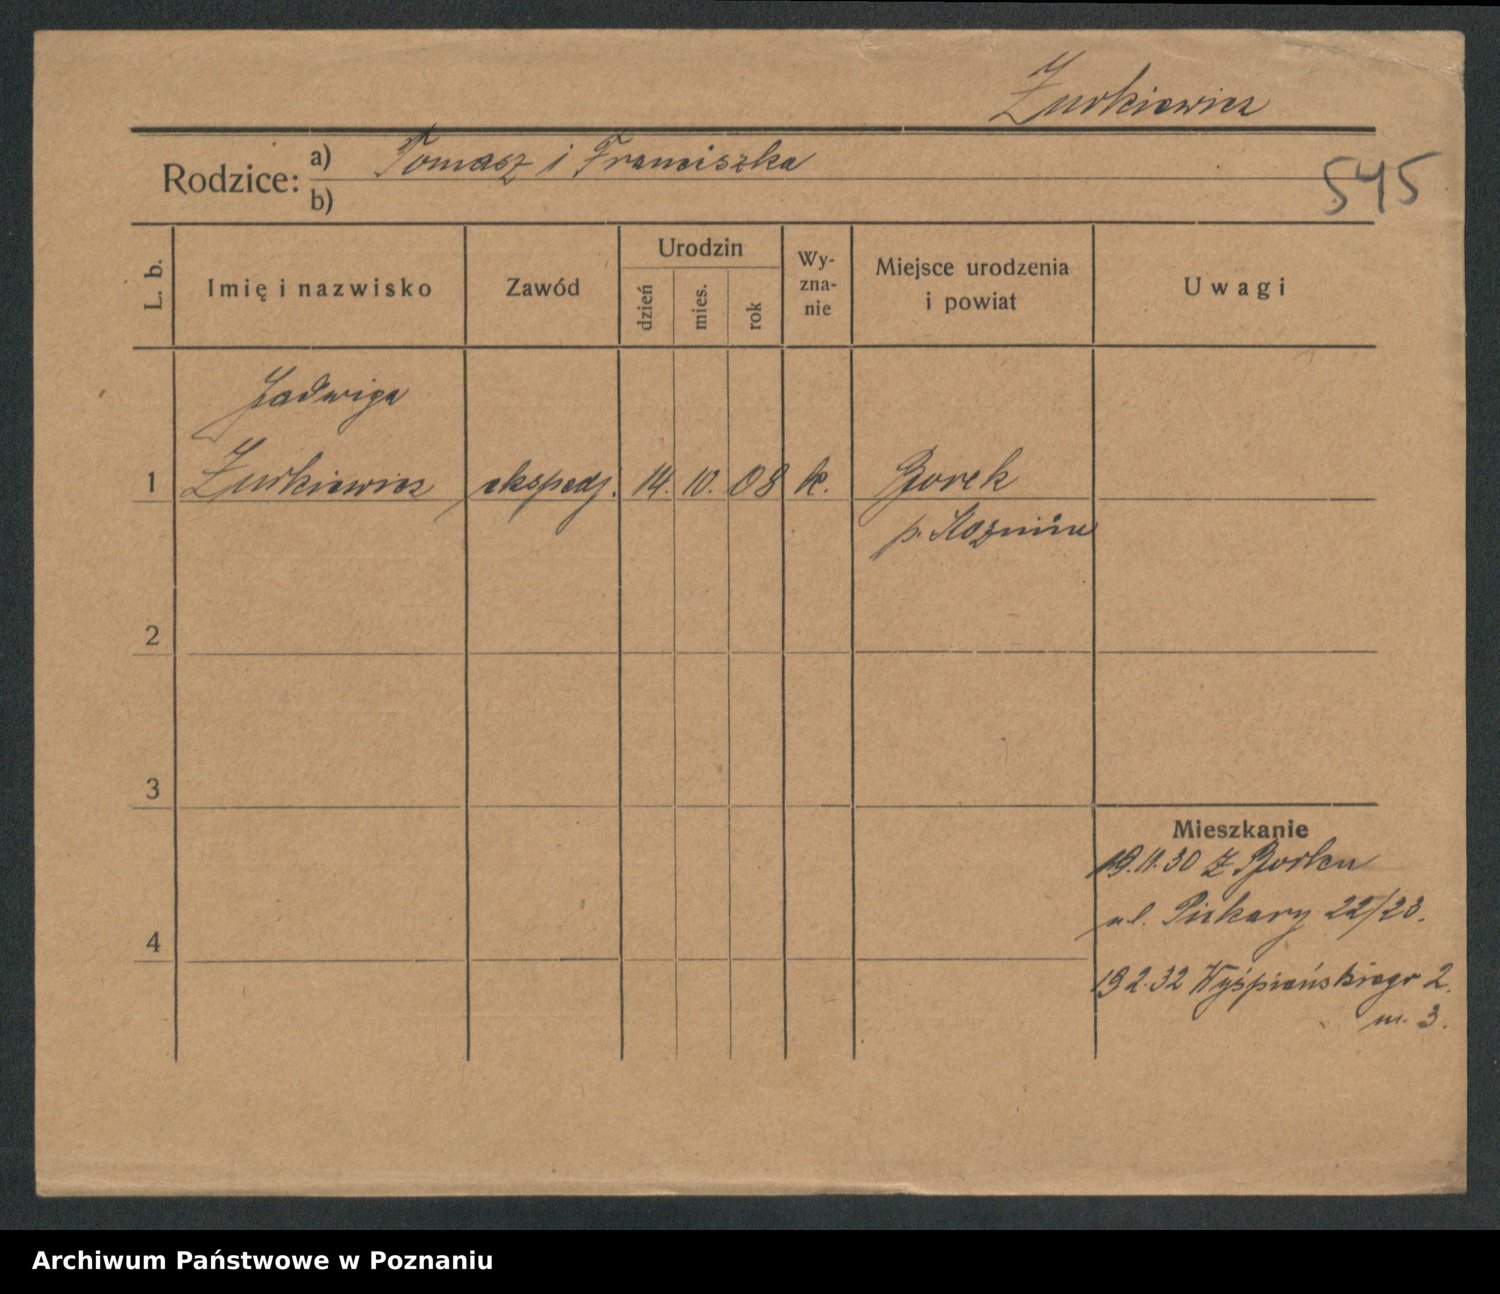 Żurkiewicz
Rodzice: a) Tomasz i Franciszka
b)
545
L. b.
Imię i nazwisko
Zawód
Urodzin
dzień
mies.
rok
Wy-
zna-
nie
Miejsce urodzenia
i powiat
Uwagi
Jadwiga
1 Żurkiewicz ekspedj. 14. 10. 08 k. Borek
p. Koźmin
2
3
4
Mieszkanie
19.11.30 z Borku
ul. Piekary 22/23.
19 2.32 Wyśpiańskiego 2.
m. 3.
Archiwum Państwowe w Poznaniu